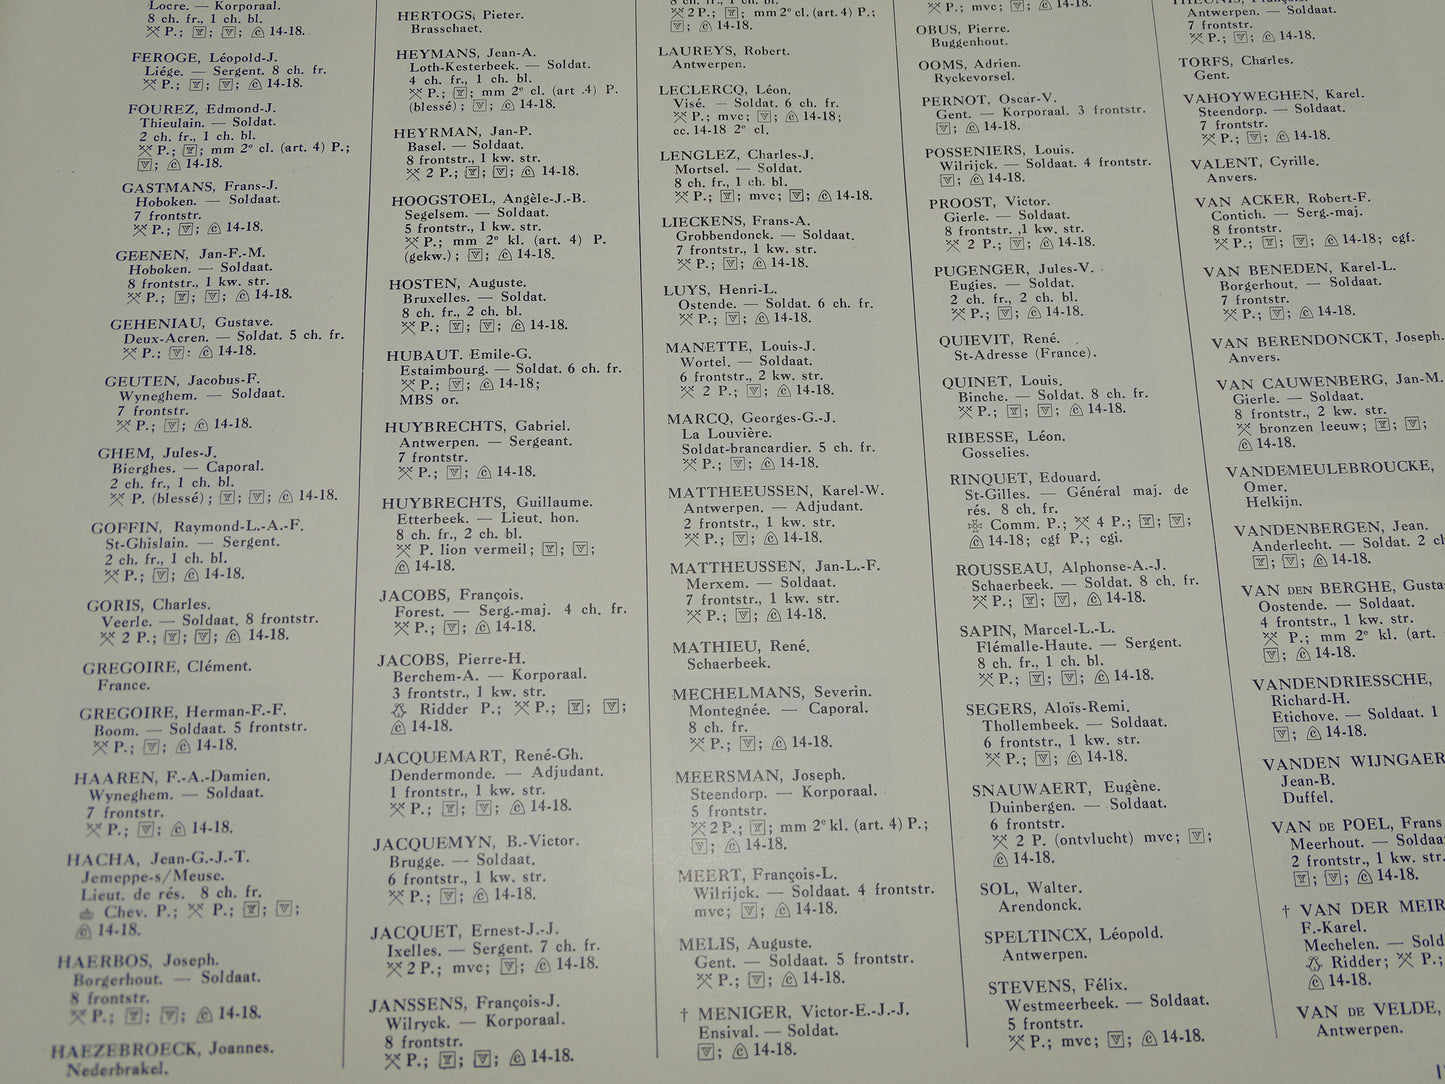 Locre. — Korporaal.
8 ch. fr., 1 ch. bl.
P.; 14-18.
FEROGE, Léopold-J.
Liége. — Sergent. 8 ch. fr.
P.; 14-18.
FOUREZ, Edmond-J.
Thieulain. — Soldat.
2 ch. fr., 1 ch. bl.
P.; mm 2e cl. (art. 4) P.;
14-18.
GASTMANS, Frans-J.
Hoboken. — Soldaat.
7 frontstr.
P.; 14-18.
GEENEN, Jan-F.-M.
Hoboken. — Soldaat.
8 frontstr., 1 kw. str.
P.; 14-18.
GEHENIAU, Gustave.
Deux-Acren. — Soldat. 5 ch. fr.
P.; 14-18.
GEUTEN, Jacobus-F.
Wyneghem. — Soldaat.
7 frontstr.
P.; 14-18.
GHEM, Jules-J.
Bierghes. — Caporal.
2 ch. fr., 1 ch. bl.
P. (blessé); 14-18.
GOFFIN, Raymond-L.-A.-F.
St-Ghislain. — Sergent.
2 ch. fr., 1 ch. bl.
P.; 14-18.
GORIS, Charles.
Veerle. — Soldaat. 8 frontstr.
2 P.; 14-18.
GREGOIRE, Clément.
France.
GREGOIRE, Herman-F.-F.
Boom. — Soldaat. 5 frontstr.
P.; 14-18.
HAAREN, F.-A.-Damien.
Wyneghem. — Soldaat.
7 frontstr.
P.; 14-18.
HACHA, Jean-G.-J.-T.
Jemeppe-s/Meuse.
Lieut. de rés. 8 ch. fr.
Chev. P.; P.;
14-18.
HAERBOS, Joseph.
Borgerhout. — Soldaat.
8 frontstr.
P.; 14-18.
HAEZEBROECK, Joannes.
Nederbrakel.
HERTOGS, Pieter.
Brasschaet.
HEYMANS, Jean-A.
Loth-Kesterbeek. — Soldat.
4 ch. fr., 1 ch. bl.
P.; mm 2e cl. (art .4) P.
(blessé); 14-18.
HEYRMAN, Jan-P.
Basel. — Soldaat.
8 frontstr., 1 kw. str.
2 P.; 14-18.
HOOGSTOEL, Angèle-J.-B.
Segelsem. — Soldaat.
5 frontstr., 1 kw. str.
P.; mm 2e kl. (art. 4) P.
(gekw.); 14-18.
HOSTEN, Auguste.
Bruxelles. — Soldat.
8 ch. fr., 2 ch. bl.
P.; 14-18.
HUBAUT. Emile-G.
Estaimbourg. — Soldat. 6 ch. fr.
P.; 14-18;
MBS or.
HUYBRECHTS, Gabriel.
Antwerpen. — Sergeant.
7 frontstr.
P.; 14-18.
HUYBRECHTS, Guillaume.
Etterbeek. — Lieut. hon.
8 ch. fr., 2 ch. bl.
P. lion vermeil;
14-18.
JACOBS, François.
Forest. — Serg.-maj. 4 ch. fr.
P.; 14-18.
JACOBS, Pierre-H.
Berchem-A. — Korporaal.
3 frontstr., 1 kw. str.
Ridder P.; P.;
14-18.
JACQUEMART, René-Gh.
Dendermonde. — Adjudant.
1 frontstr., 1 kw. str.
P.; 14-18.
JACQUEMYN, B.-Victor.
Brugge. — Soldaat.
6 frontstr., 1 kw. str.
P.; 14-18.
JACQUET, Ernest-J.-J.
Ixelles. — Sergent. 7 ch. fr.
2 P.; mvc; 14-18.
JANSSENS, François-J.
Wilryck. — Korporaal.
8 frontstr.
P.; 14-18.
2 P.; mm 2e cl. (art. 4) P.;
14-18.
LAUREYS, Robert.
Antwerpen.
LECLERCQ, Léon.
Visé. — Soldat. 6 ch. fr.
P.; mvc; 14-18;
cc. 14-18 2e cl.
LENGLEZ, Charles-J.
Mortsel. — Soldat.
8 ch. fr., 1 ch. bl.
P.; mvc; 14-18.
LIECKENS, Frans-A.
Grobbendonck. — Soldaat.
7 frontstr., 1 kw. str.
P.; 14-18.
LUYS, Henri-L.
Ostende. — Soldat. 6 ch. fr.
P.; 14-18.
MANETTE, Louis-J.
Wortel. — Soldaat.
6 frontstr., 2 kw. str.
2 P.; 14-18.
MARCQ, Georges-G.-J.
La Louvière.
Soldat-brancardier. 5 ch. fr.
P.; 14-18.
MATTHEEUSSEN, Karel-W.
Antwerpen. — Adjudant.
2 frontstr., 1 kw. str.
P.; 14-18.
MATTHEUSSEN, Jan-L.-F.
Merxem. — Soldaat.
7 frontstr., 1 kw. str.
P.; 14-18.
MATHIEU, René.
Schaerbeek.
MECHELMANS, Severin.
Montegnée. — Caporal.
8 ch. fr.
P.; 14-18.
MEERSMAN, Joseph.
Steendorp. — Korporaal.
5 frontstr.
2 P.; mm 2e kl. (art. 4) P.;
14-18.
MEERT, François-L.
Wilrijck. — Soldaat. 4 frontstr.
mvc; 14-18.
MELIS, Auguste.
Gent. — Soldaat. 5 frontstr.
P.; 14-18.
† MENIGER, Victor-E.-J.-J.
Ensival. — Soldat.
14-18.
P.; mvc; 14-18.
OBUS, Pierre.
Buggenhout.
OOMS, Adrien.
Ryckevorsel.
PERNOT, Oscar-V.
Gent. — Korporaal. 3 frontstr.
14-18.
POSSENIERS, Louis.
Wilrijck. — Soldaat. 4 frontstr.
14-18.
PROOST, Victor.
Gierle. — Soldaat.
8 frontstr. ,1 kw. str.
2 P.; 14-18.
PUGENGER, Jules-V.
Eugies. — Soldat.
2 ch. fr., 2 ch. bl.
P.; 14-18.
QUIEVIT, René.
St-Adresse (France).
QUINET, Louis.
Binche. — Soldat. 8 ch. fr.
P.; 14-18.
RIBESSE, Léon.
Gosselies.
RINQUET, Edouard.
St-Gilles. — Général maj. de
rés. 8 ch. fr.
Comm. P.; 4 P.;
14-18; cgf P.; cgi.
ROUSSEAU, Alphonse-A.-J.
Schaerbeek. — Soldat. 8 ch. fr.
P.; 14-18.
SAPIN, Marcel-L.-L.
Flémalle-Haute. — Sergent.
8 ch. fr., 1 ch. bl.
P.; 14-18.
SEGERS, Aloïs-Remi.
Thollembeek. — Soldaat.
6 frontstr., 1 kw. str.
P.; 14-18.
SNAUWAERT, Eugène.
Duinbergen. — Soldaat.
6 frontstr.
2 P. (ontvlucht) mvc;
14-18.
SOL, Walter.
Arendonck.
SPELTINCX, Léopold.
Antwerpen.
STEVENS, Félix.
Westmeerbeek. — Soldaat.
5 frontstr.
P.; mvc; 14-18.
Antwerpen. — Soldaat.
7 frontstr.
P.; 14-18.
TORFS, Charles.
Gent.
VAHOYWEGHEN, Karel.
Steendorp. — Soldaat.
7 frontstr.
P.; 14-18.
VALENT, Cyrille.
Anvers.
VAN ACKER, Robert-F.
Contich. — Serg.-maj.
8 frontstr.
P.; 14-18; cgf.
VAN BENEDEN, Karel-L.
Borgerhout. — Soldaat.
7 frontstr.
P.; 14-18.
VAN BERENDONCKT, Joseph.
Anvers.
VAN CAUWENBERG, Jan-M.
Gierle. — Soldaat.
8 frontstr., 2 kw. str.
bronzen leeuw;
14-18.
VANDEMEULEBROUCKE,
Omer.
Helkijn.
VANDENBERGEN, Jean.
Anderlecht. — Soldat. 2 c
14-18.
VAN DEN BERGHE, Gusta
Oostende. — Soldaat.
4 frontstr., 1 kw. str.
P.; mm 2e kl. (art.
14-18.
VANDENDRIESSCHE,
Richard-H.
Etichove. — Soldaat. 1
14-18.
VANDEN WIJNGAER
Jean-B.
Duffel.
VAN DE POEL, Frans
Meerhout. — Soldaa
2 frontstr., 1 kw. str.
14-18.
† VAN DER MEIR
F.-Karel.
Mechelen. — Sold
Ridder; P.;
14-18.
VAN DE VELDE,
Antwerpen.